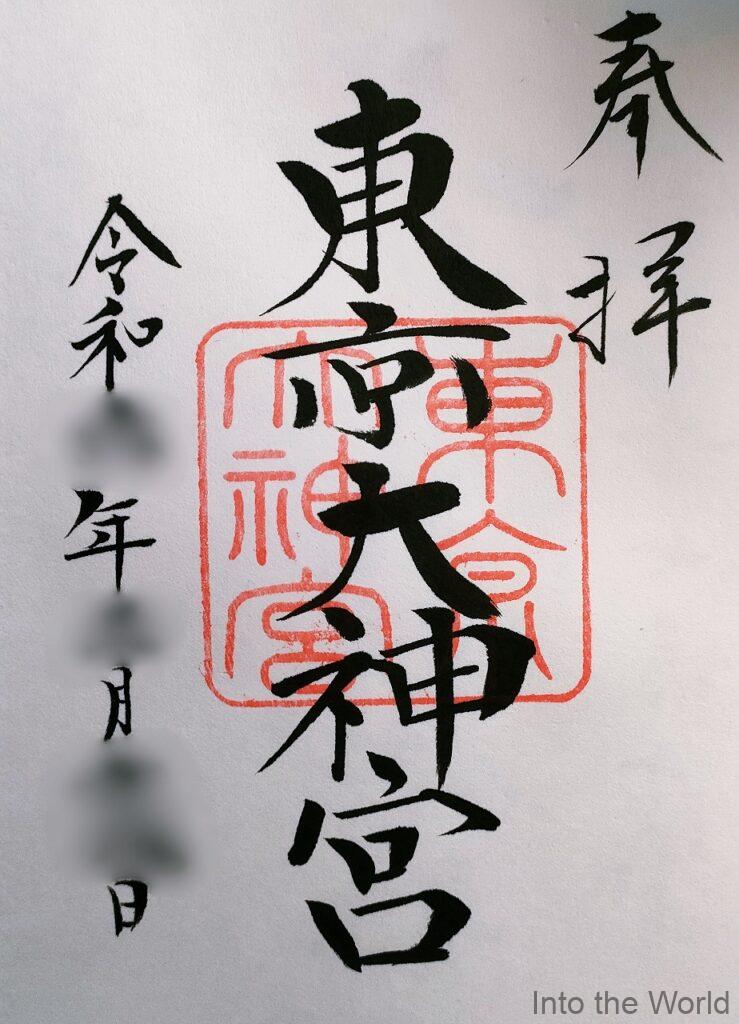 奉拝
東京大神宮
東京
大神宮
令和 年 月 日
Into the World